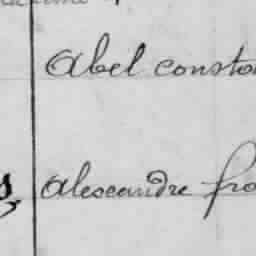 Abel consta
s, alexandre fra